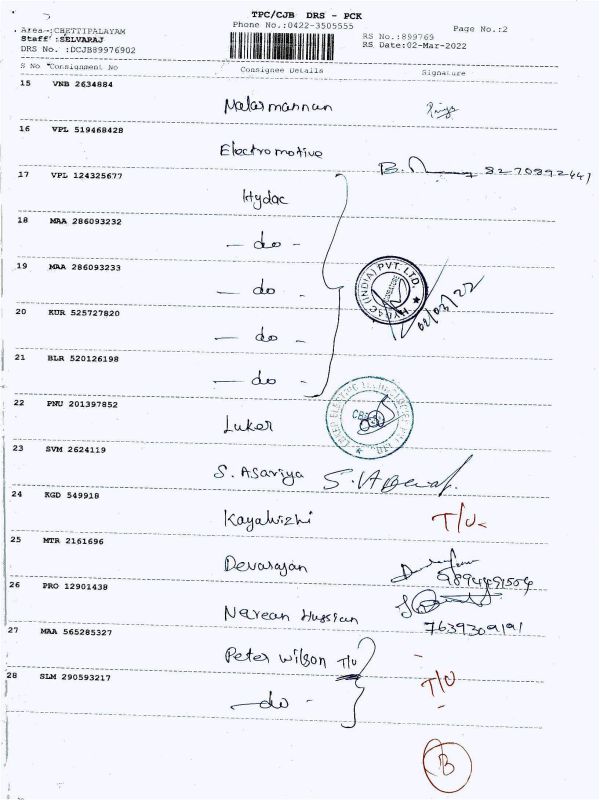 TPC/CJB DRS - PCK
Phone No.:0422-3505555
Page No.:2
Area :CHETTIPALAYAM
Staff :SELVARAJ
DRS No. :DCJB89976902
RS No.:899769
RS Date:02-Mar-2022
S No Consignment No Consignee Details Signature
15 VNB 2634884 Malarmannan Priya
16 VPL 519468428 Electromotive
8270892441
17 VPL 124325677 Hydac
18 MAA 286093232 - do -
19 MAA 286093233 - do -
(INDIA) PVT. LTD.
02/03/22
20 KUR 525727820 - do -
21 BLR 520126198 - do -
22 PNU 201397852 Luker
23 SVM 2624119 S. Asariya
24 KGD 549918 Kayalvizhi T/U
25 MTR 2161696 Devarajan
9894491504
26 PRO 12901438 Navean Hussian
7639309191
27 MAA 565285327 Peter Wilson T/U
28 SLM 290593217 - do - T/U
B